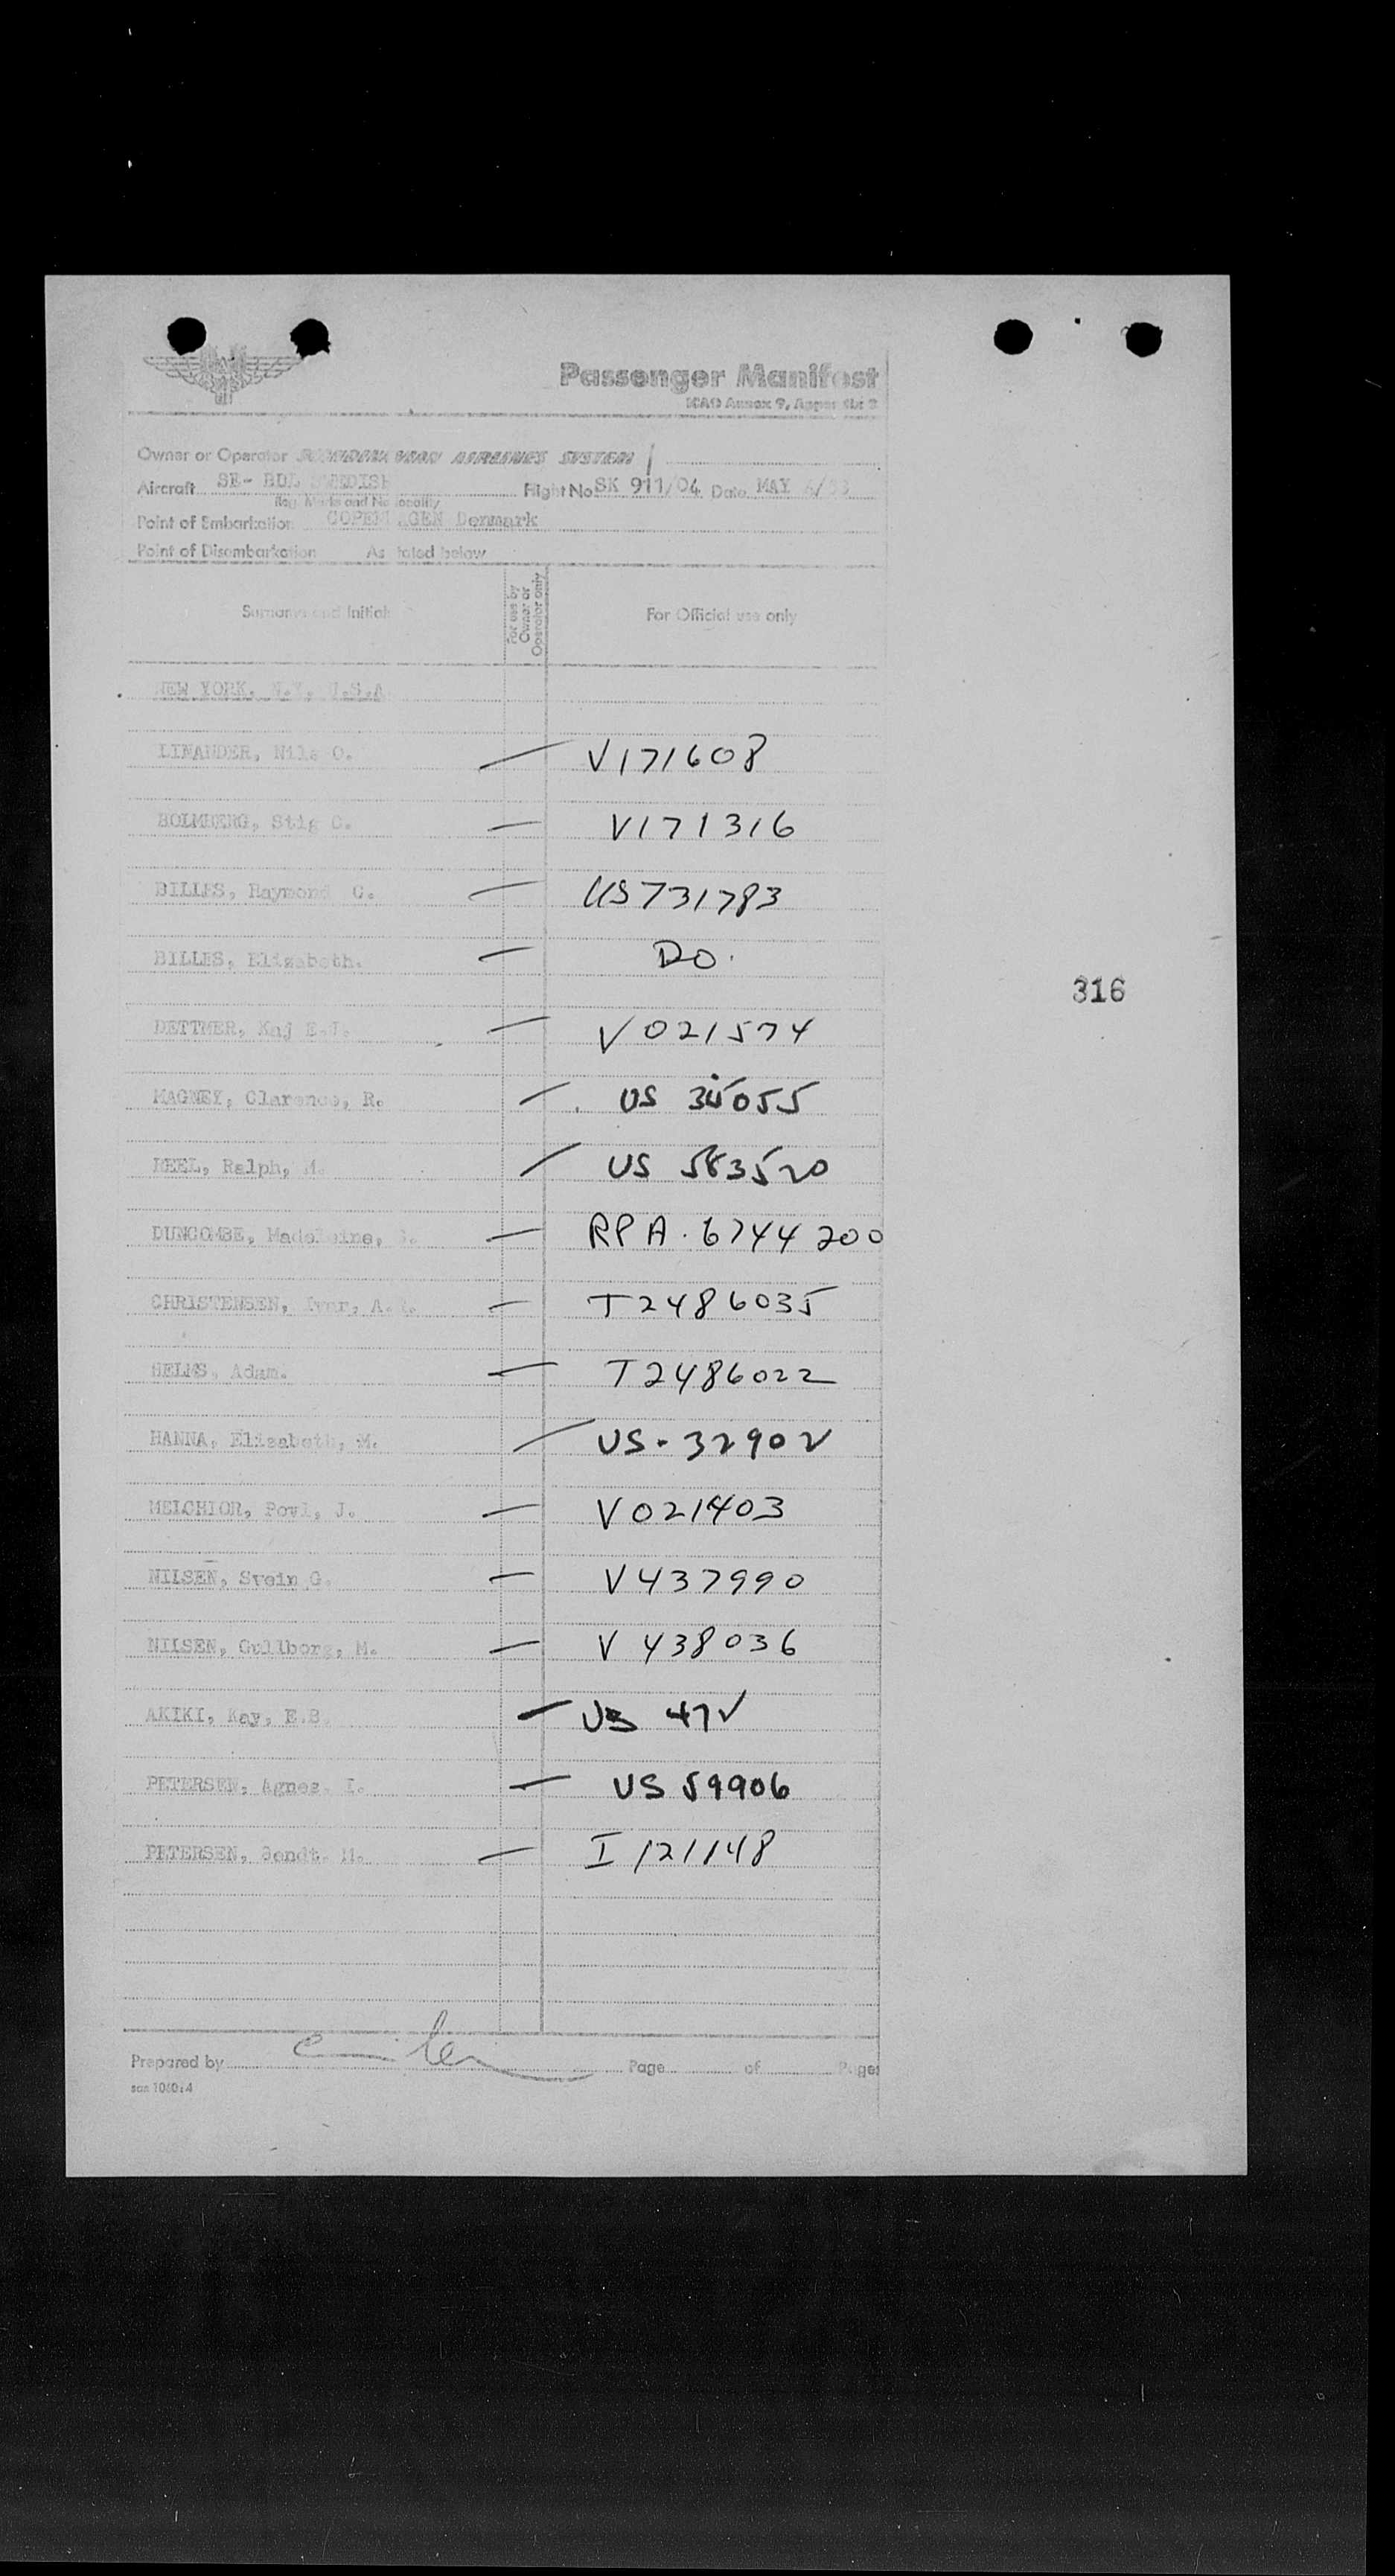 Passenger Manifest
ICAO Annex 9, Appendix 3
Owner or Operator SCANDINAVIAN AIRLINES SYSTEM
Aircraft SE- BDL SWEDISH Flight No. SK 911/04 Date MAY /53
Reg. Marks and Nationality
Point of Embarkation COPENHAGEN Denmark
Point of Disembarkation As stated below
Surname and Initials
For use by Owner or Operator only
For Official use only
NEW YORK, N.Y. U.S.A
LINANDER, Nils O. — V171608
HOLMBERG, Stig C. — V171316
BILLES, Raymond C. — US731783
BILLES, Elizabeth. — DO.
DETTMER, Kaj E.T. — V021574
MAGNEY, Clarence, R. — US 34055
Ralph, M. — US 583520
DUNCOMBE, Madeleine, — RPA. 6744200
CHRISTENSEN, Ivar, A. — T2486035
Adam. — T2486022
HANNA, Elizabeth, M. — US- 32902
MELCHIOR, Povl, J. — V021403
NILSEN, Svein G. — V437990
NILSEN, Gullborg, M. — V 438036
AKIKI, Kay, E.B. — US 472
PETERSEN, Agnes, I. — US 59906
PETERSEN, Bendt. H. — I 121148
316
Prepared by
Page of Pages
sas 1060:4